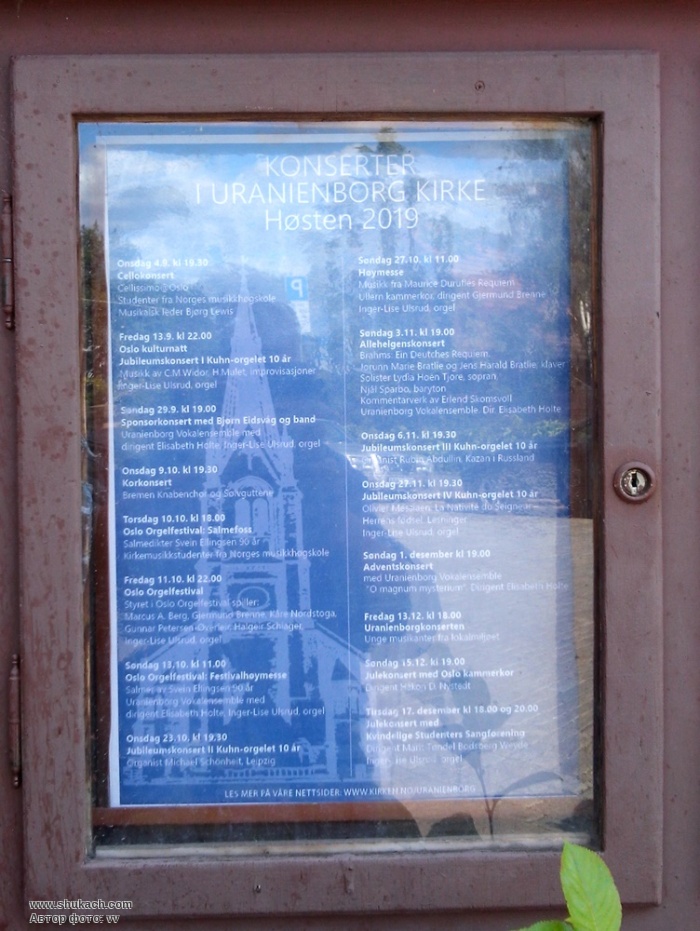 KONSERTER
I URANIENBORG KIRKE
Høsten 2019
Onsdag 4.9. kl 19.30
Cellokonsert
Cellissimo Oslo
Studenter fra Norges musikkhøgskole
Musikalsk leder Bjørg Lewis
Fredag 13.9. kl 22.00
Oslo kulturnatt
Jubileumskonsert I Kuhn-orgelet 10 år
Musikk av C.M Widor, H.Mulet, improvisasjoner
Inger-Lise Ulsrud, orgel
Søndag 29.9. kl 19.00
Sponsorkonsert med Bjørn Eidsvåg og band
Uranienborg Vokalensemble med
dirigent Elisabeth Holte, Inger-Lise Ulsrud, orgel
Onsdag 9.10. kl 19.30
Korkonsert
Bremen Knabenchor og Sølvguttene
Torsdag 10.10. kl 18.00
Oslo Orgelfestival: Salmefoss
Salmedikter Svein Ellingsen 90 år
Kirkemusikkstudenter fra Norges musikkhøgskole
Fredag 11.10. kl 22.00
Oslo Orgelfestival
Styret i Oslo Orgelfestival spiller:
Marcus A. Berg, Gjermund Brenne, Kåre Nordstoga,
Gunnar Petersen-Øverleir, Halgeir Schiager,
Inger-Lise Ulsrud, orgel
Søndag 13.10. kl 11.00
Oslo Orgelfestival: Festivalhøymesse
Salmer av Svein Ellingsen 90 år
Uranienborg Vokalensemble med
dirigent Elisabeth Holte, Inger-Lise Ulsrud, orgel
Onsdag 23.10. kl 19.30
Jubileumskonsert II Kuhn-orgelet 10 år
Organist Michael Schönheit, Leipzig
Søndag 27.10. kl 11.00
Høymesse
Musikk fra Maurice Duruflés Requiem
Ullern kammerkor, dirigent Gjermund Brenne
Inger-Lise Ulsrud, orgel
Søndag 3.11. kl 19.00
Allehelgenskonsert
Brahms: Ein Deutches Requiem
Jorunn Marie Bratlie og Jens Harald Bratlie, klaver
Solister Lydia Hoen Tjore, sopran
Njål Sparbo, baryton
Kommentarverk av Erlend Skomsvoll
Uranienborg Vokalensemble. Dir. Elisabeth Holte
Onsdag 6.11. kl 19.30
Jubileumskonsert III Kuhn-orgelet 10 år
Organist Rubin Abdullin, Kazan i Russland
Onsdag 27.11. kl 19.30
Jubileumskonsert IV Kuhn-orgelet 10 år
Olivier Messiaen: La Nativité du Seigneur
Herrens fødsel, Lesninger
Inger-Lise Ulsrud, orgel
Søndag 1. desember kl 19.00
Adventskonsert
med Uranienborg Vokalensemble
"O magnum mysterium". Dirigent Elisabeth Holte
Fredag 13.12. kl 18.00
Uranienborgkonserten
Unge musikanter fra lokalmiljøet
Søndag 15.12. kl 19.00
Julekonsert med Oslo kammerkor
Dirigent Håkon D. Nystedt
Tirsdag 17. desember kl 18.00 og 20.00
Julekonsert med
Kvindelige Studenters Sangforening
Dirigent Marit Tøndel Bodsberg Weyde
Inger-Lise Ulsrud, orgel
LES MER PÅ VÅRE NETTSIDER: WWW.KIRKEN.NO/URANIENBORG
P
www.shukach.com
Автор фото: vv